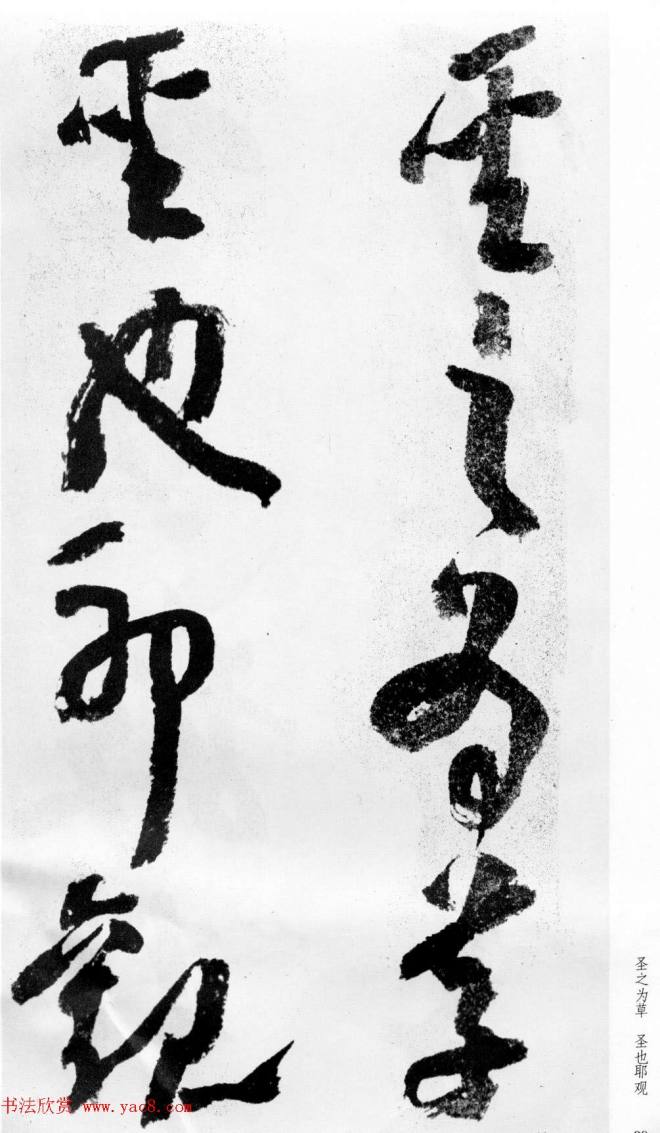 聖之為草
聖也耶觀
圣之为草 圣也耶观
书法欣赏 www.yac8.com